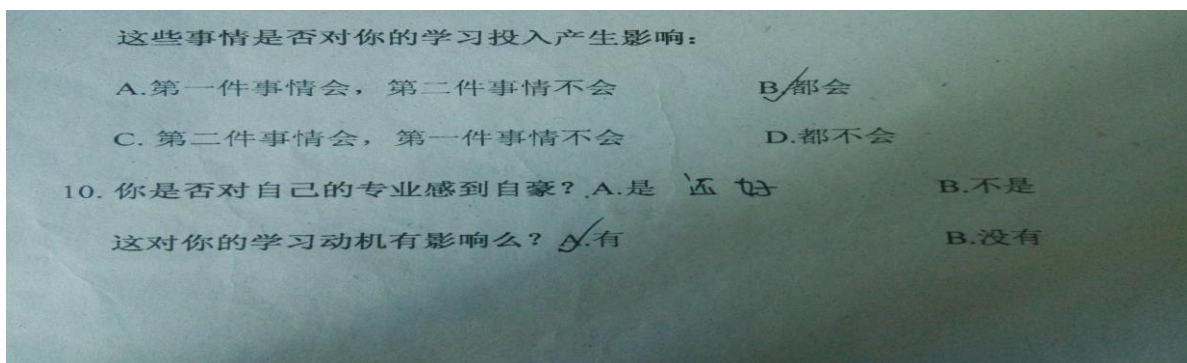 这些事情是否对你的学习投入产生影响：
A.第一件事情会，第二件事情不会 B.都会
C. 第二件事情会，第一件事情不会 D.都不会
10. 你是否对自己的专业感到自豪？A.是 还好 B.不是
这对你的学习动机有影响么？A.有 B.没有